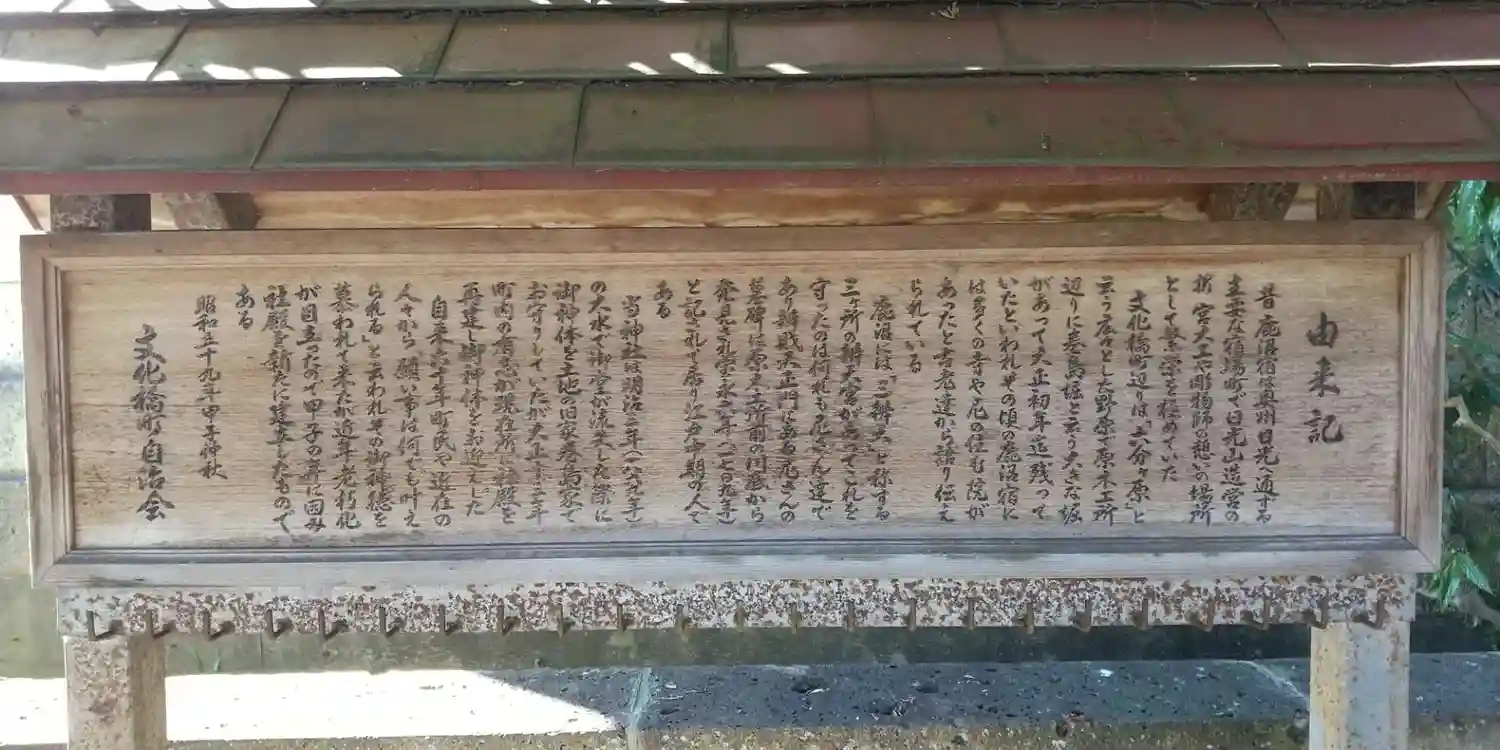 由来記
昔 鹿沼宿は奥州日光へ通ずる
主要な宿場町で日光山造営の
折 宮大工や彫物師の憩いの場所
として繁栄を極めていた
文化橋町辺りは「五分ヶ原」と
云う広々とした野原で原木工所
辺りに長島堀と云う大きな堀
があって大正初年迄残って
いたといわれその頃の鹿沼宿に
は多くの寺や尼の住む院が
あったと古老達から語り伝え
られている
鹿沼には「三辨天」と称する
三ヶ所の辨天宮が在ってこれを
守ったのは何れも尼さん達で
あり辨財天正門にある尼さんの
墓碑は原木工所前の川底から
発見され宗永二年(一七九〇年)
と記されて居り江戸中期の人で
ある
当神社は明治二年(一八六九年)
の大水で御宮が流失した際に
御神体を土地の旧家長島家で
お守りしていたが大正十三年
町内の有志が現在所に社殿を
再建し御神体をお迎えした
自来六十年 町民や近在の
人々から「願い事は何でも叶え
られる」と云われその御神徳を
慕われて来たが近年老朽化
が目立ったので甲子の年に因み
社殿を新たに建立したもので
ある
昭和五十九年甲子仲秋
文化橋町自治会